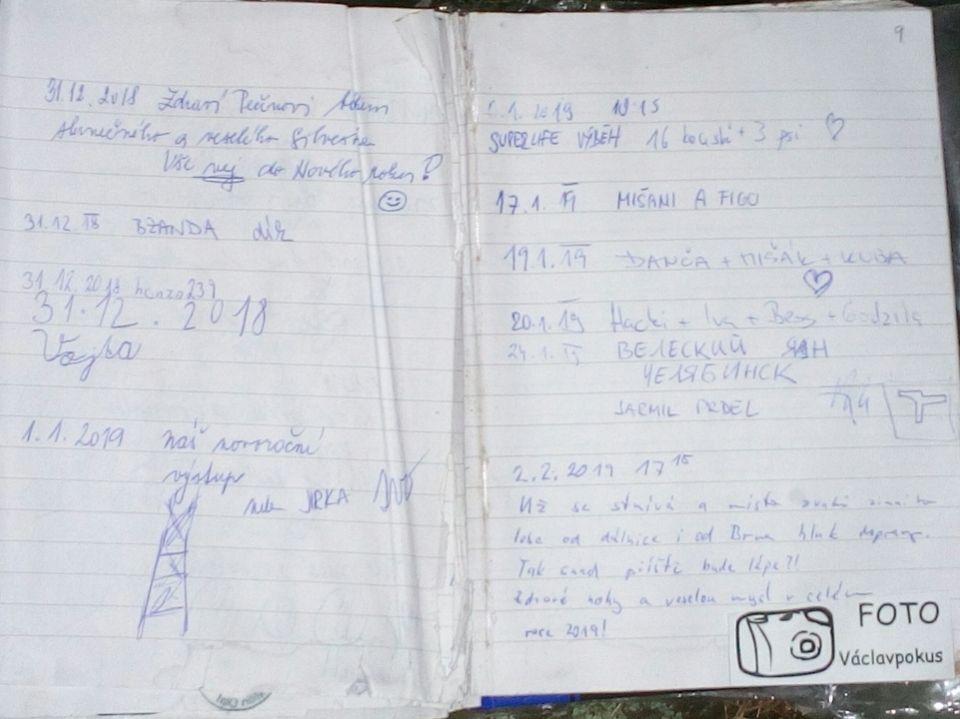 31.12.2018 Zdraví
a veselého Silvestra
Vše nej do Nového roku!
31.12.18
31.12.2018 honzo239
31.12.2018
Vojta
1.1.2019 náš novoroční
výstup
JIRKA
9
1.1.2019 10:15
SUPERLIFE VÝBĚH 16 kousků + 3 psi
17.1.19 MIŠANI A FIGO
19.1.19 DANČA + MIŠÁK + KUBA
20.1.19 Hacki + Iva + Bess + Godzila
24.1.19 ВЕЛЕСКИЙ ЯН
ЧЕЛЯБИНСК
JARMIL PRDEL
2.2.2019 17 15
Už se stmívá a místo
od dálnice i od Brna hluk
Tak snad příště bude lépe?!
Zdravé nohy a veselou mysl v celém
roce 2019!
FOTO
Václavpokus